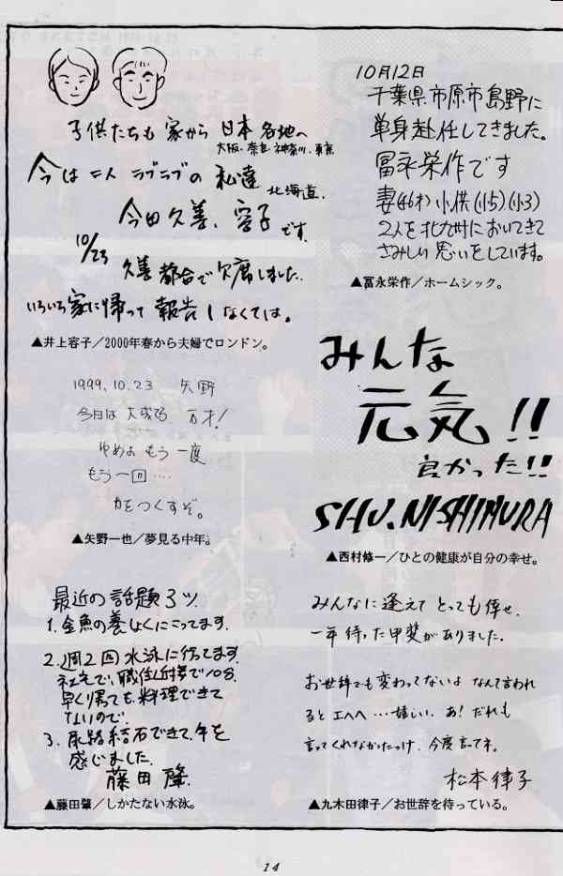 子供たちも 家から 日本 各地へ
大阪・奈良・神奈川・東京
今は 二人 ラブラブの 私達
北海道.
今田久善、容子です.
10/23
久善 都合で欠席しました.
いろいろ家に帰って 報告しなくては。
▲井上容子／2000年春から夫婦でロンドン。
1999.10.23 矢野
今日は 大成功 万才!
ゆめよ もう 一度
もう一回....
力をつくすぞ。
▲矢野一也／夢見る中年。
最近の話題3ツ
1. 金魚の養しょくにこってます.
2. 週2回 水泳に行ってます.
で、職住近接で
早く帰っても、料理できて
ないので.
3. 尿路結石できて、年を
感じました.
藤田 肇
▲藤田肇／しかたない水泳。
10月12日
千葉県市原市島野に
単身赴任してきました。
冨永栄作です
妻(46才) 小供(小5)(小3)
2人を北九州においてきて
さみしい思いをしています。
▲冨永栄作／ホームシック。
みんな
元気!!
良かった!!
SHU.NISHIMURA
▲西村修一／ひとの健康が自分の幸せ。
みんなに逢えて とっても倖せ.
一年 待った甲斐がありました.
お世辞でも変わってないよ なんて言われ
ると エヘヘ …嬉しい. あ! だれも
言ってくれなかたっけ. 今度言ってネ.
松本律子
▲九木田律子／お世辞を待っている。
14